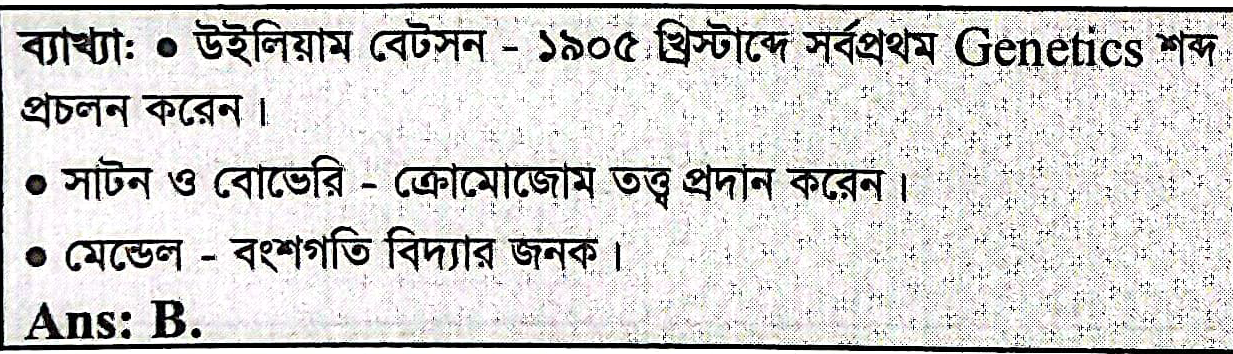 ব্যাখ্যা: ● উইলিয়াম বেটসন - ১৯০৫ খ্রিস্টাব্দে সর্বপ্রথম Genetics শব্দ
প্রচলন করেন।
● সাটন ও বোভেরি - ক্রোমোজোম তত্ত্ব প্রদান করেন।
● মেন্ডেল - বংশগতি বিদ্যার জনক।
Ans: B.